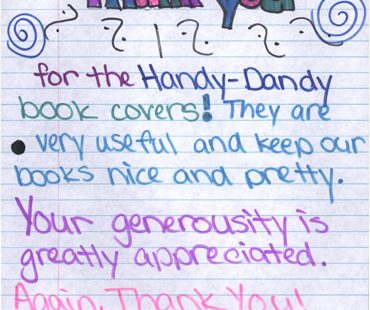 Thank You
for the Handy-Dandy
book covers! They are
very useful and keep our
books nice and pretty.
Your generousity is
greatly appreciated.
Again, Thank You!